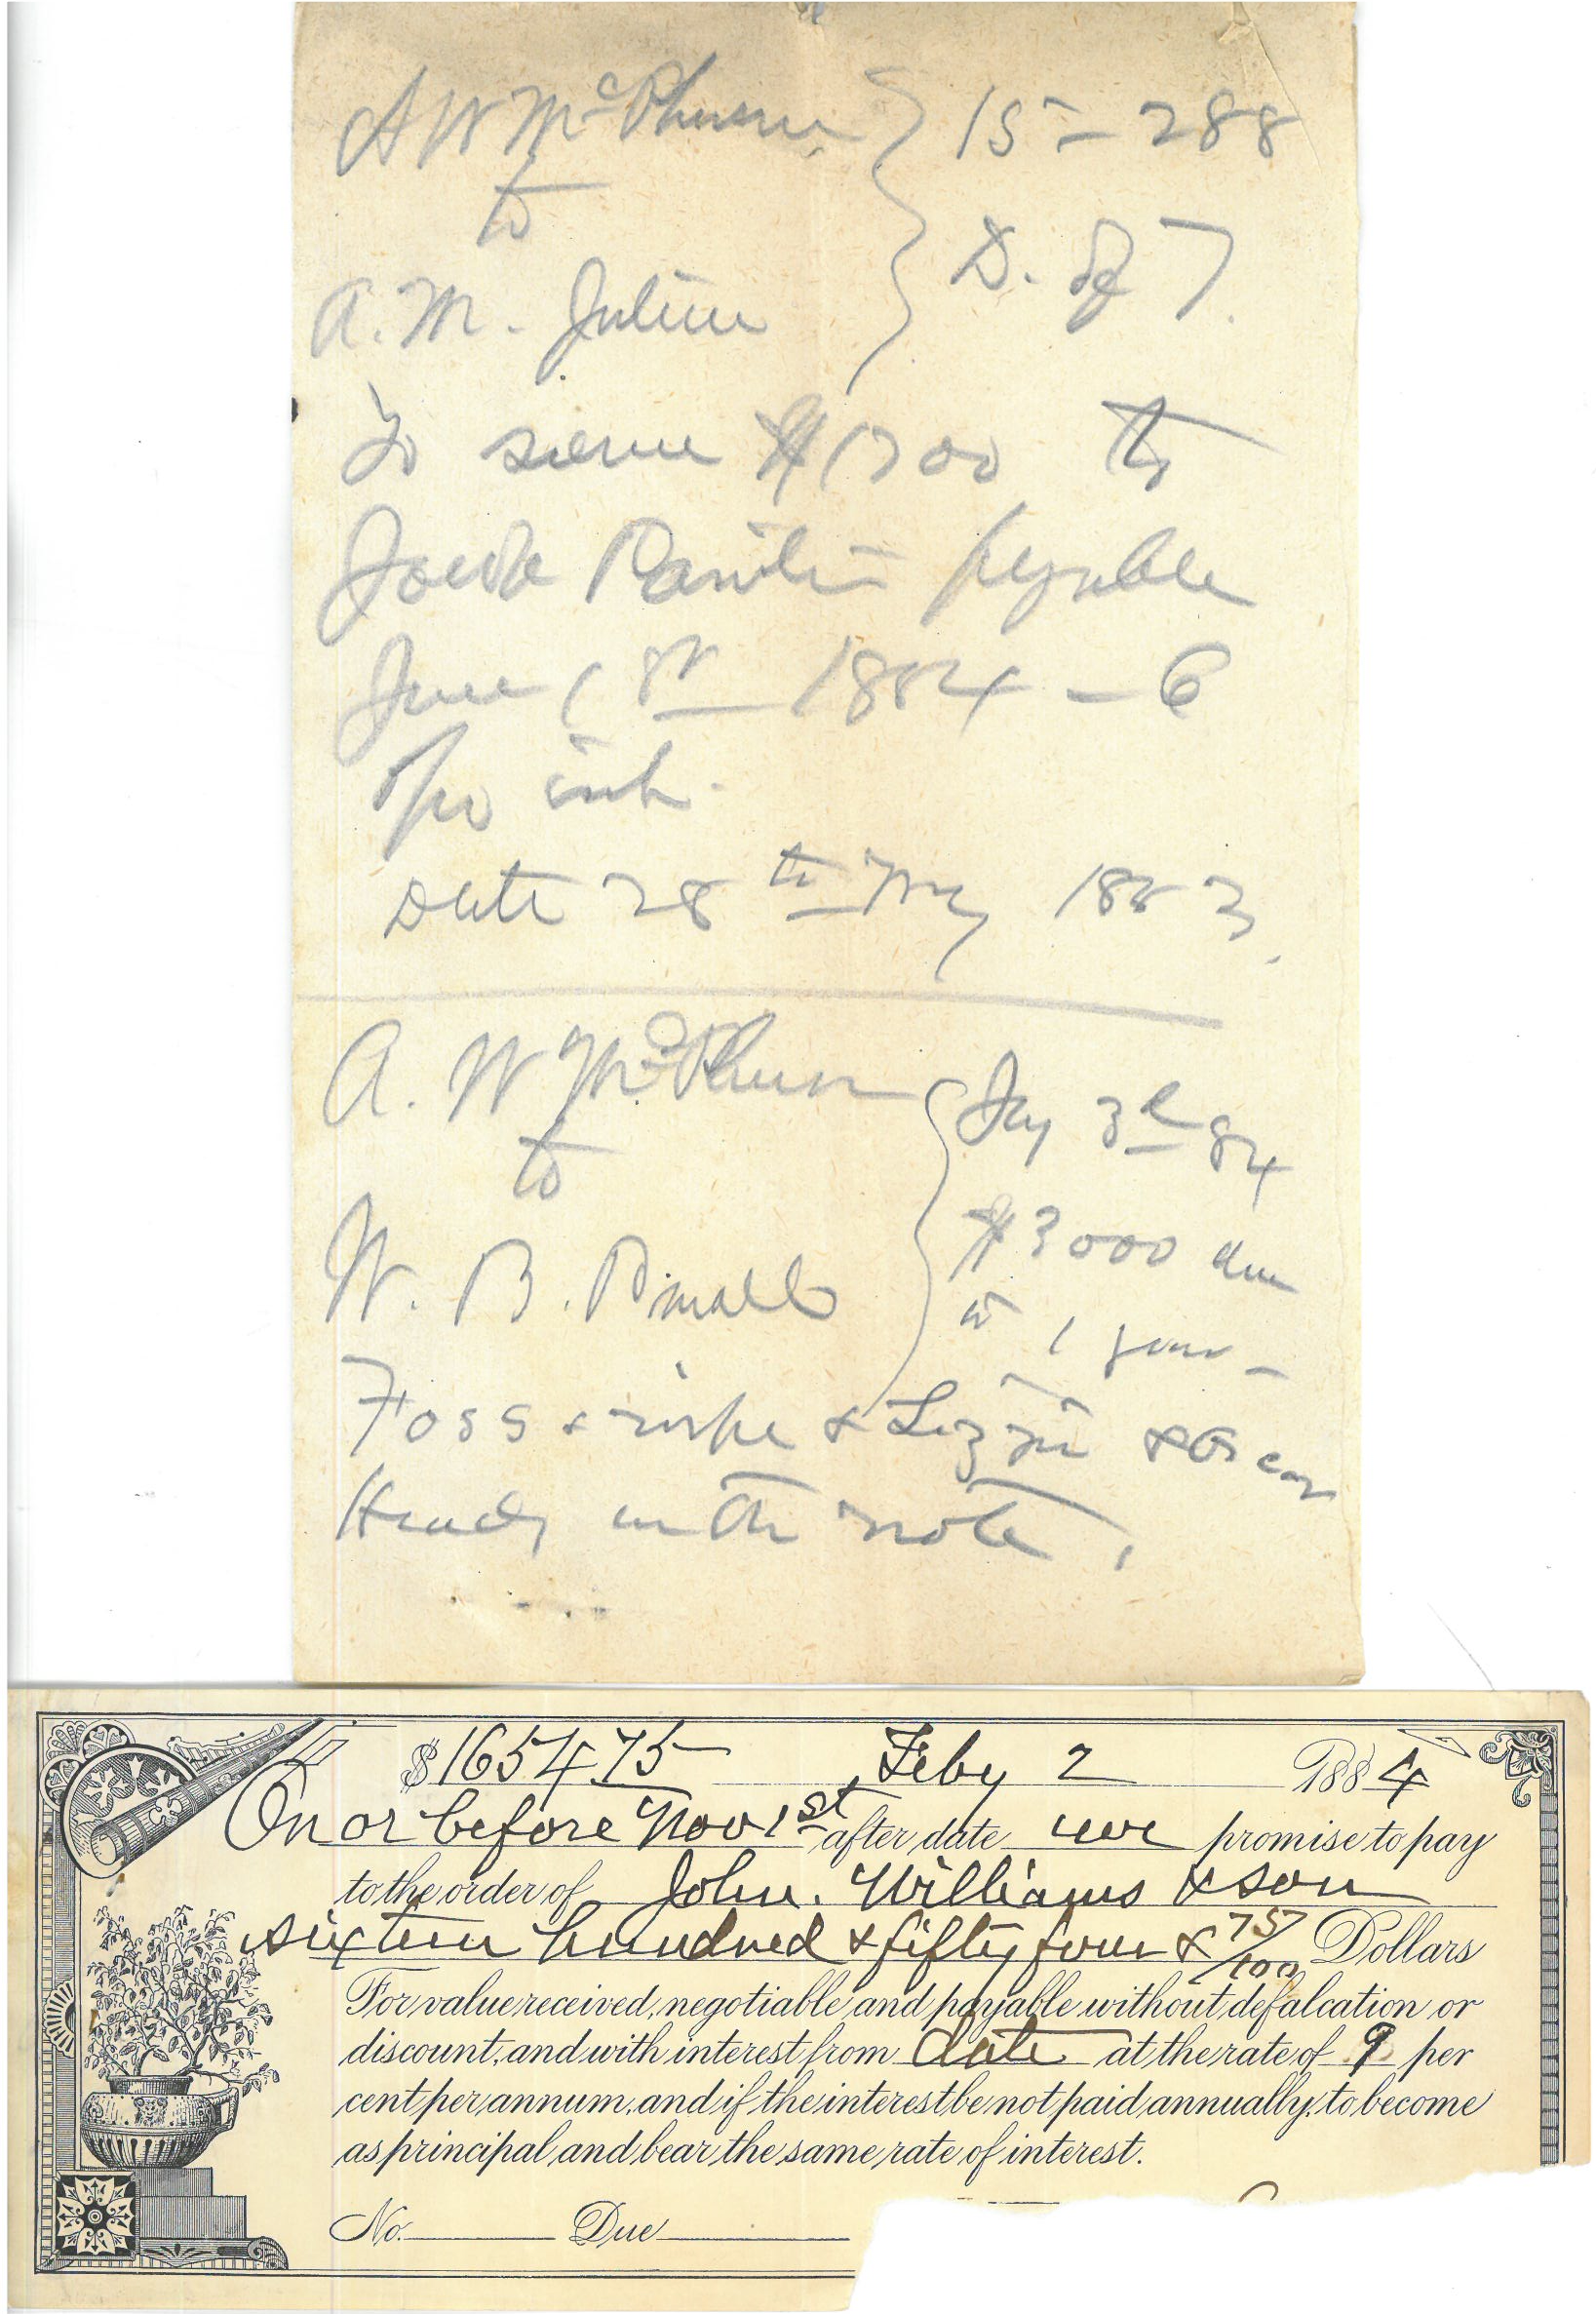 A W McPherson } 15 - 288
to
A. M. Julian } D. of T.
To secure $1700 to
payable
June 1st 1884 - 6
pr int.
Date 28th My 1883.
A. W McPherson } Jay 3d 84
to
$3000 due
W. B. in 1 year -
Foss & wife & Lizzie & Geo
Heady on the note.
$1654.75 Feby 2 1884
On or before Nov 1st after date we promise to pay
to the order of John. Williams & son
sixteen hundred & fifty four & 75/100 Dollars
For value received, negotiable and payable without defalcation or
discount, and with interest from date at the rate of 9 per
cent per annum, and if the interest be not paid annually, to become
as principal and bear the same rate of interest.
No. Due